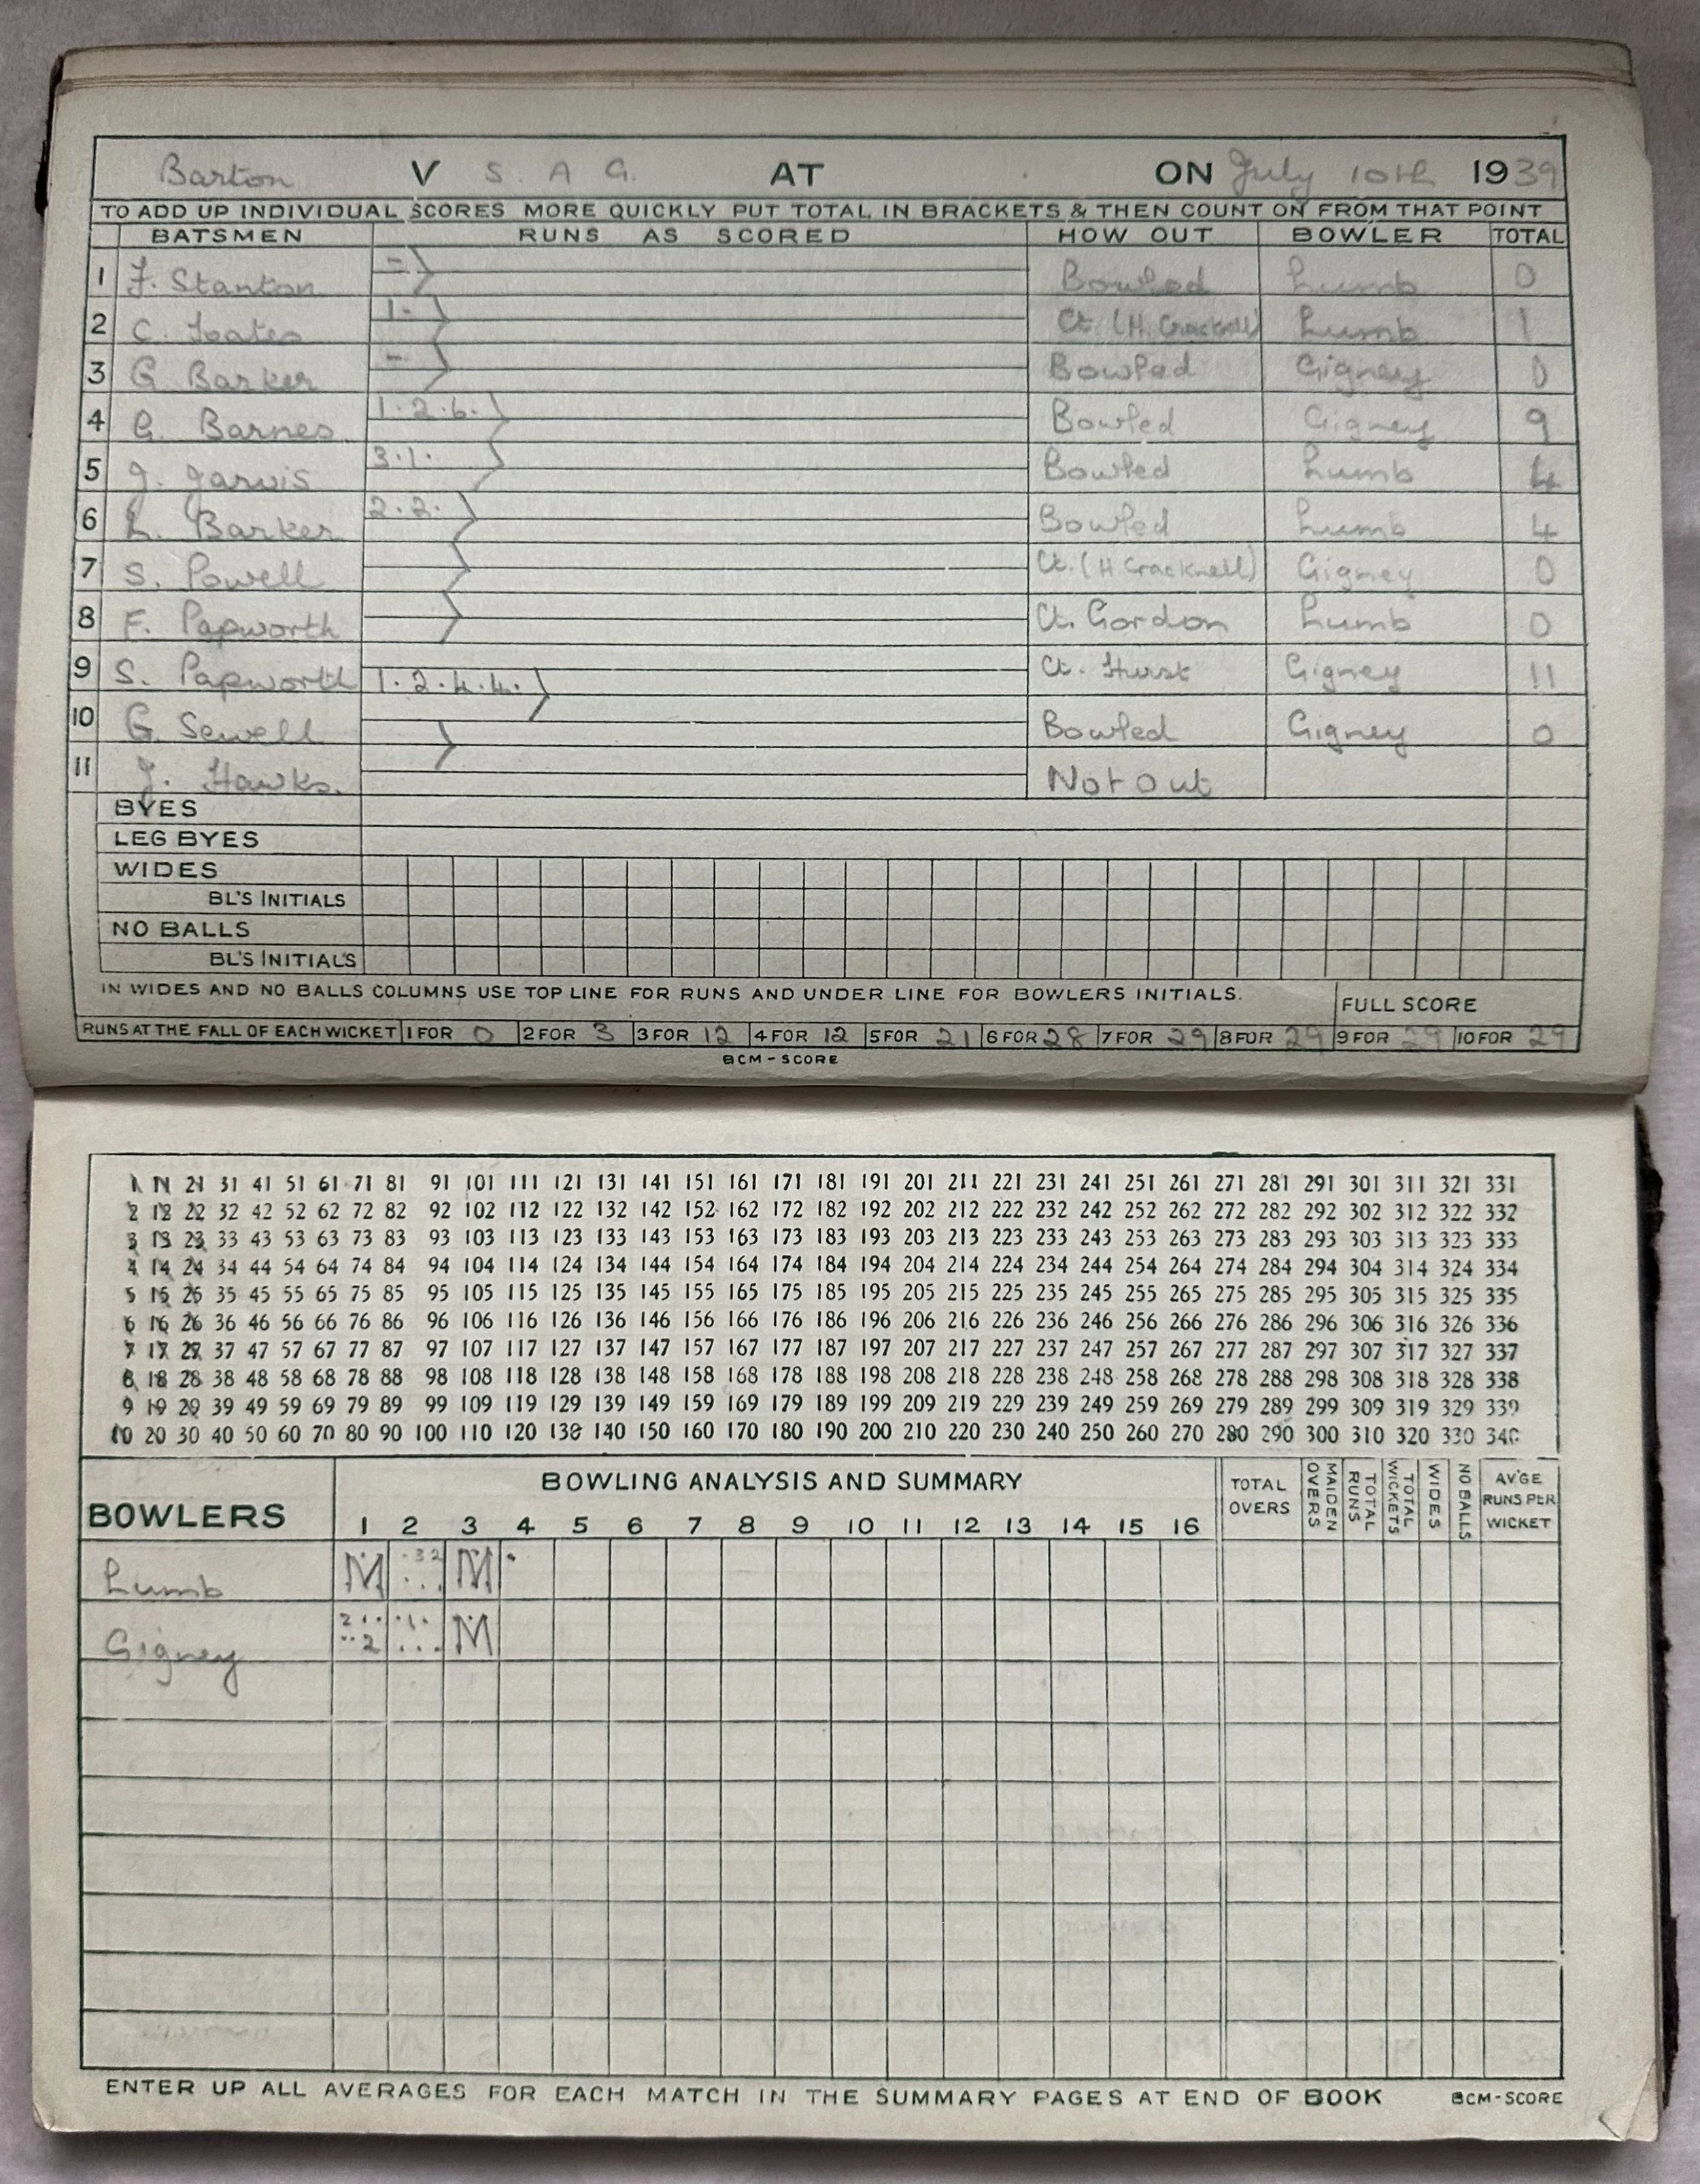 Barton V S. A G. AT ON July 10th 1939
TO ADD UP INDIVIDUAL SCORES MORE QUICKLY PUT TOTAL IN BRACKETS & THEN COUNT ON FROM THAT POINT
BATSMEN RUNS AS SCORED HOW OUT BOWLER TOTAL
1 F. Stanton - Bowled Lumb 0
2 C. Foates 1. Ct. (H. Cracknell) Lumb 1
3 G Barker - Bowled Gigney 0
4 G. Barnes 1.2.6. Bowled Gigney 9
5 J. Jarvis 3.1. Bowled Lumb 4
6 L. Barker 2.2. Bowled Lumb 4
7 S. Powell Ct. (H Cracknell) Gigney 0
8 F. Papworth Ct. Gordon Lumb 0
9 S. Papworth 1.2.4.4. Ct. Hurst Gigney 11
10 G. Sewell Bowled Gigney 0
11 J. Hawks. Not Out
BYES
LEG BYES
WIDES
BL'S INITIALS
NO BALLS
BL'S INITIALS
IN WIDES AND NO BALLS COLUMNS USE TOP LINE FOR RUNS AND UNDER LINE FOR BOWLERS INITIALS. FULL SCORE
RUNS AT THE FALL OF EACH WICKET 1 FOR 0 2 FOR 3 3 FOR 12 4 FOR 12 5 FOR 21 6 FOR 28 7 FOR 29 8 FOR 29 9 FOR 29 10 FOR 29
BCM-SCORE
1 11 21 31 41 51 61 71 81 91 101 111 121 131 141 151 161 171 181 191 201 211 221 231 241 251 261 271 281 291 301 311 321 331
2 12 22 32 42 52 62 72 82 92 102 112 122 132 142 152 162 172 182 192 202 212 222 232 242 252 262 272 282 292 302 312 322 332
3 13 23 33 43 53 63 73 83 93 103 113 123 133 143 153 163 173 183 193 203 213 223 233 243 253 263 273 283 293 303 313 323 333
4 14 24 34 44 54 64 74 84 94 104 114 124 134 144 154 164 174 184 194 204 214 224 234 244 254 264 274 284 294 304 314 324 334
5 15 25 35 45 55 65 75 85 95 105 115 125 135 145 155 165 175 185 195 205 215 225 235 245 255 265 275 285 295 305 315 325 335
6 16 26 36 46 56 66 76 86 96 106 116 126 136 146 156 166 176 186 196 206 216 226 236 246 256 266 276 286 296 306 316 326 336
7 17 27 37 47 57 67 77 87 97 107 117 127 137 147 157 167 177 187 197 207 217 227 237 247 257 267 277 287 297 307 317 327 337
8 18 28 38 48 58 68 78 88 98 108 118 128 138 148 158 168 178 188 198 208 218 228 238 248 258 268 278 288 298 308 318 328 338
9 19 29 39 49 59 69 79 89 99 109 119 129 139 149 159 169 179 189 199 209 219 229 239 249 259 269 279 289 299 309 319 329 339
10 20 30 40 50 60 70 80 90 100 110 120 130 140 150 160 170 180 190 200 210 220 230 240 250 260 270 280 290 300 310 320 330 340
BOWLERS BOWLING ANALYSIS AND SUMMARY TOTAL OVERS MAIDEN OVERS TOTAL RUNS TOTAL WICKETS WIDES NO BALLS AV'GE RUNS PER WICKET
1 2 3 4 5 6 7 8 9 10 11 12 13 14 15 16
Lumb M .32 ... M .
Gigney 21. ..2 .1. ... M
ENTER UP ALL AVERAGES FOR EACH MATCH IN THE SUMMARY PAGES AT END OF BOOK BCM-SCORE